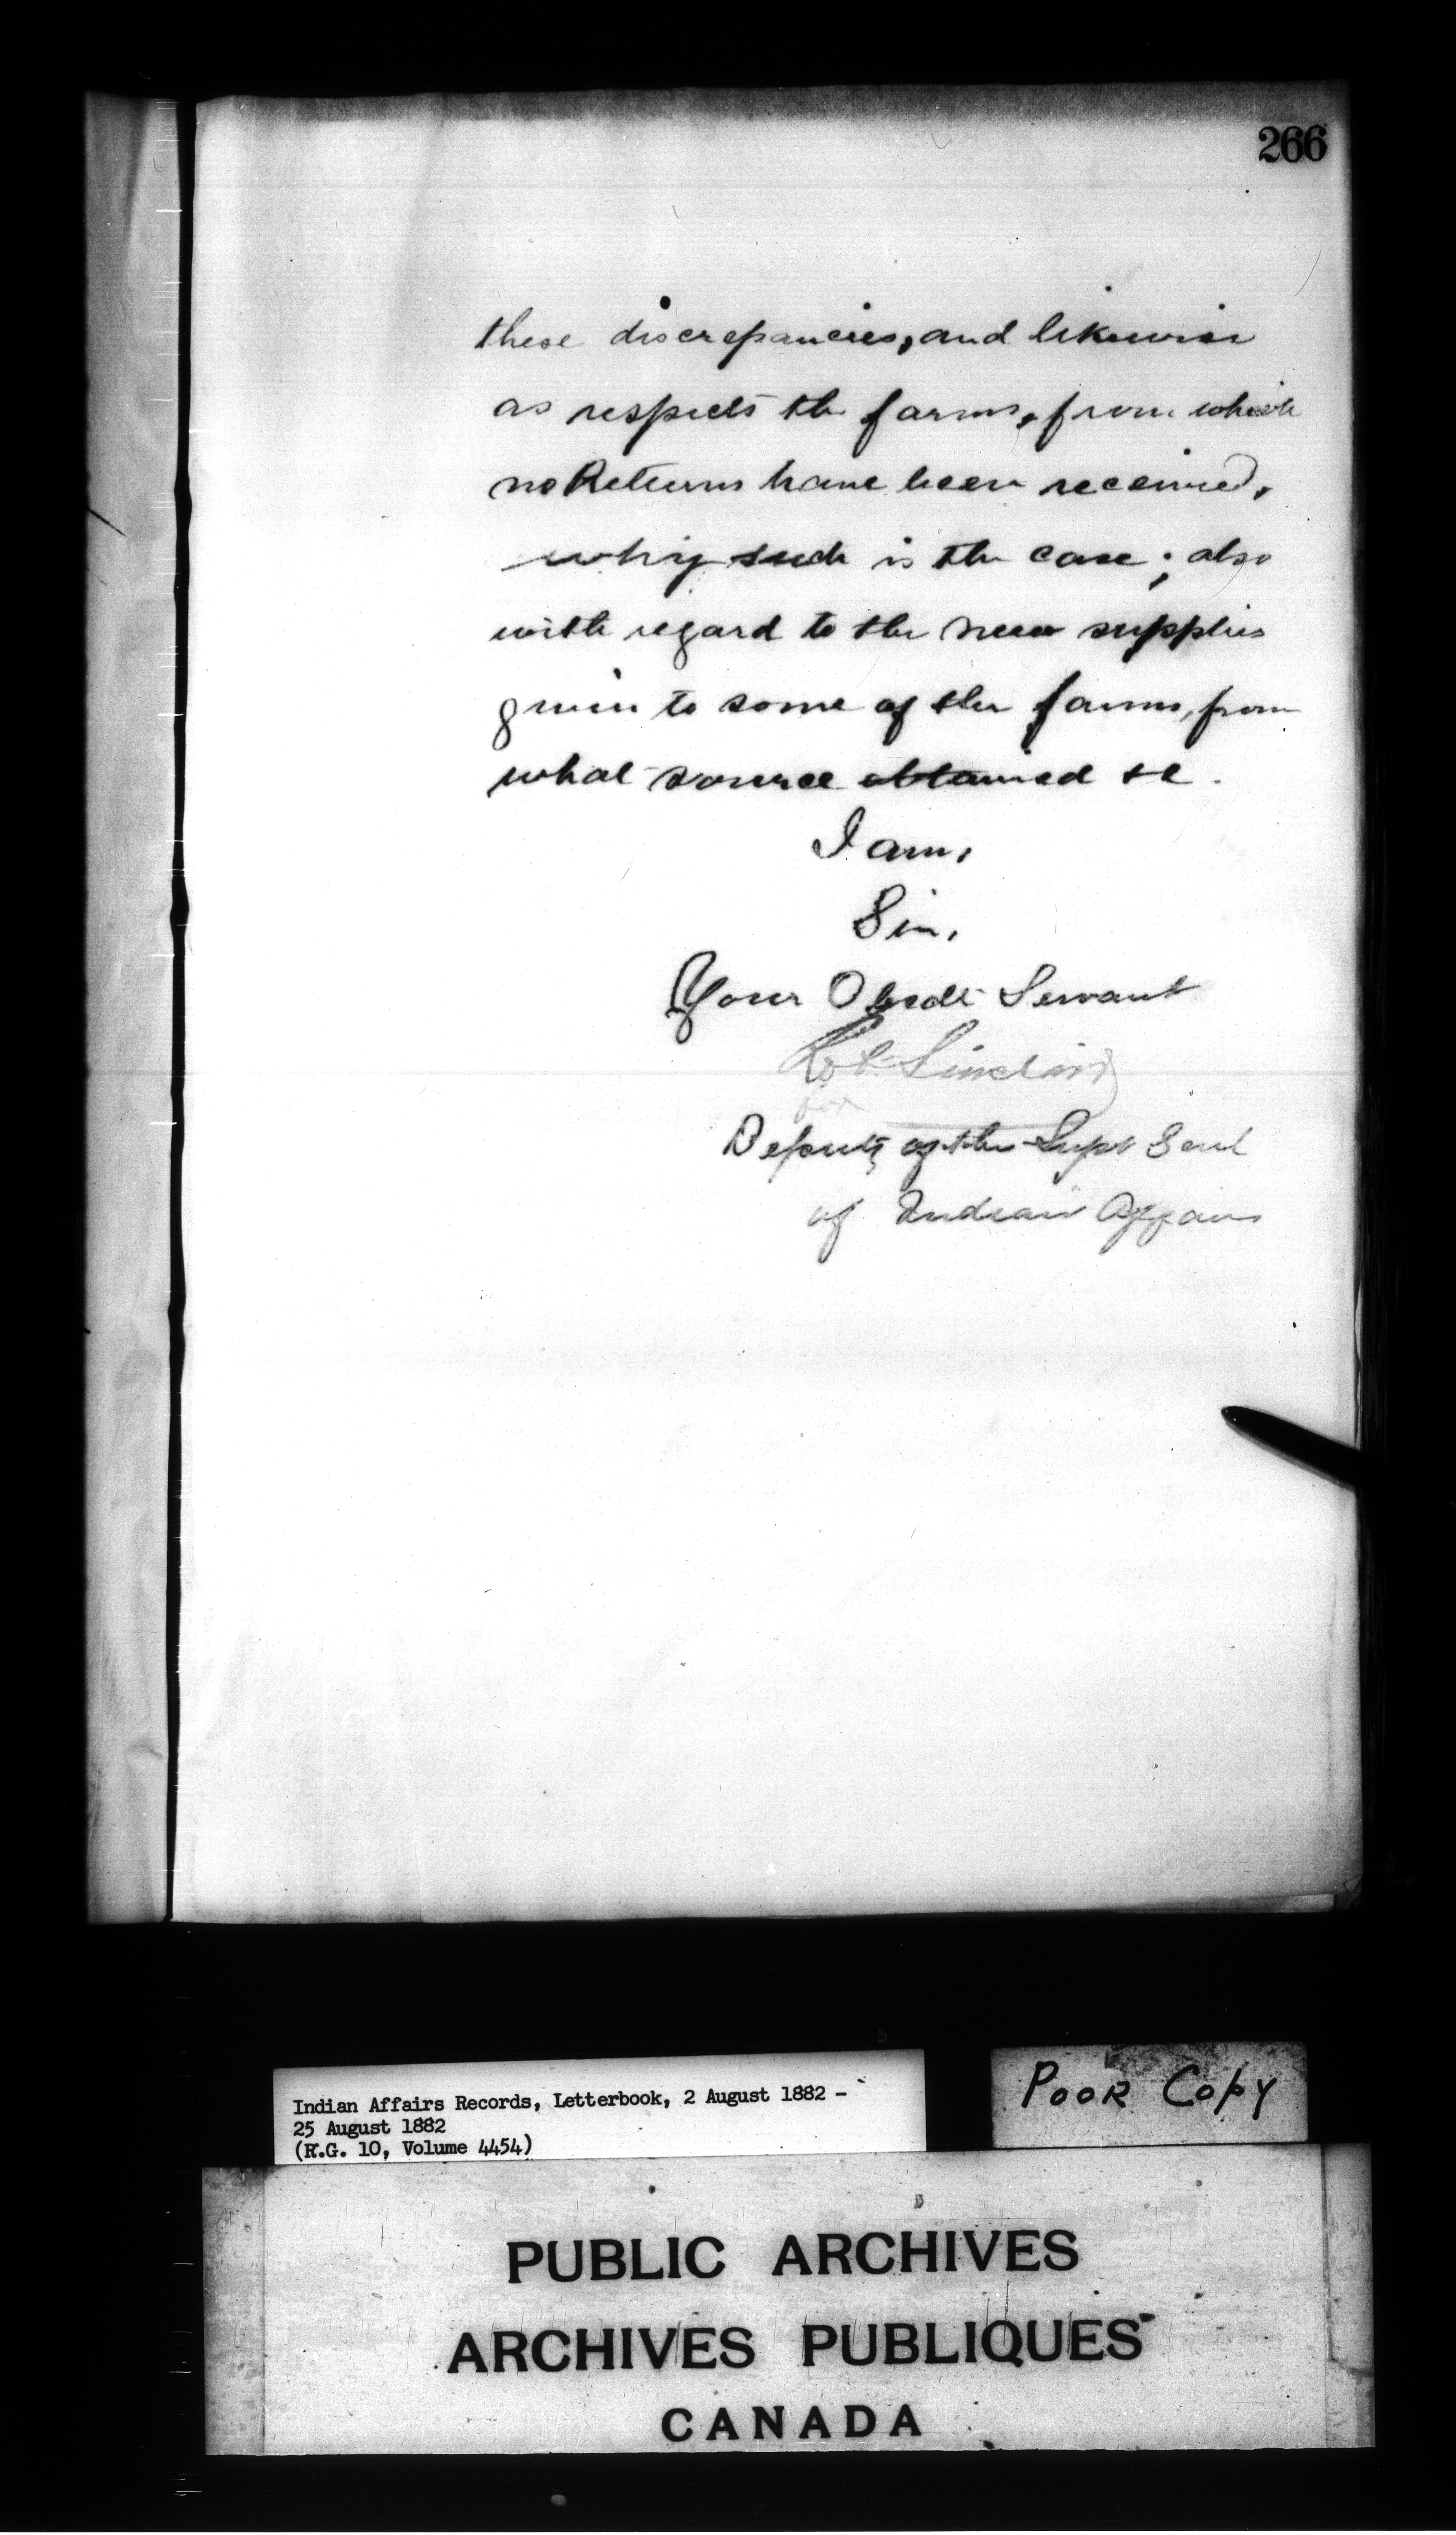 266
these discrepancies, and likewise
as respects the farms, from which
no Returns have been received,
why such is the case; also
with regard to the new supplies
given to some of the farms, from
what source obtained &c.
I am,
Sir,
Your Obedt Servant
Sinclair
for
Deputy of the Supt Genl
of Indian Affairs
Indian Affairs Records, Letterbook, 2 August 1882 -
25 August 1882
(R.G. 10, Volume 4454)
POOR COPY
PUBLIC ARCHIVES
ARCHIVES PUBLIQUES
CANADA